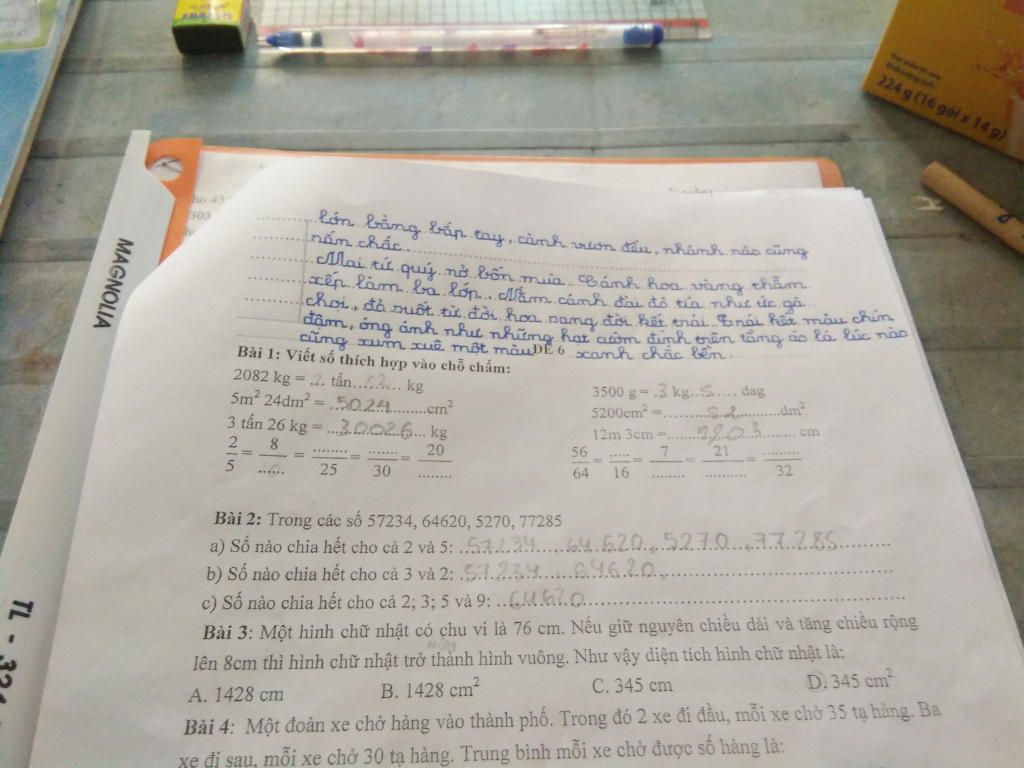 224 g (16 gói x 14 g)
MAGNOLIA
lớn bằng bắp tay, cành vươn đều, nhánh nào cũng
rắn chắc.
Mai tứ quý nở bốn mùa. Cánh hoa vàng thẫm
xếp làm ba lớp. Năm cánh đài đỏ tía như ức gà
chọi, đỏ suốt từ đời hoa sang đời kết trái. Trái kết màu chín
đậm, óng ánh như những hạt cườm đính trên tầng áo lá lúc nào
cũng xum xuê một màu xanh chắc bền.
ĐỀ 6
Bài 1: Viết số thích hợp vào chỗ chấm:
2082 kg = 2 tấn 82 kg
3500 g = 3 kg 5 dag
5m² 24dm² = 5024 cm²
5200cm² = 52 dm²
3 tấn 26 kg = 30026 kg
12m 3cm = 1203 cm
2/5 = 8/...... = ......../25 = ......./30 = 20/........
56/64 = ...../16 = 7/........ = 21/.......... = ........./32
Bài 2: Trong các số 57234, 64620, 5270, 77285
a) Số nào chia hết cho cả 2 và 5: 57234, 64620, 5270, 77285
b) Số nào chia hết cho cả 3 và 2: 57234, 64620,
c) Số nào chia hết cho cả 2; 3; 5 và 9: 64620
Bài 3: Một hình chữ nhật có chu vi là 76 cm. Nếu giữ nguyên chiều dài và tăng chiều rộng
lên 8cm thì hình chữ nhật trở thành hình vuông. Như vậy diện tích hình chữ nhật là:
A. 1428 cm B. 1428 cm² C. 345 cm D. 345 cm²
Bài 4: Một đoàn xe chở hàng vào thành phố. Trong đó 2 xe đi đầu, mỗi xe chở 35 tạ hàng. Ba
xe đi sau, mỗi xe chở 30 tạ hàng. Trung bình mỗi xe chở được số hàng là: